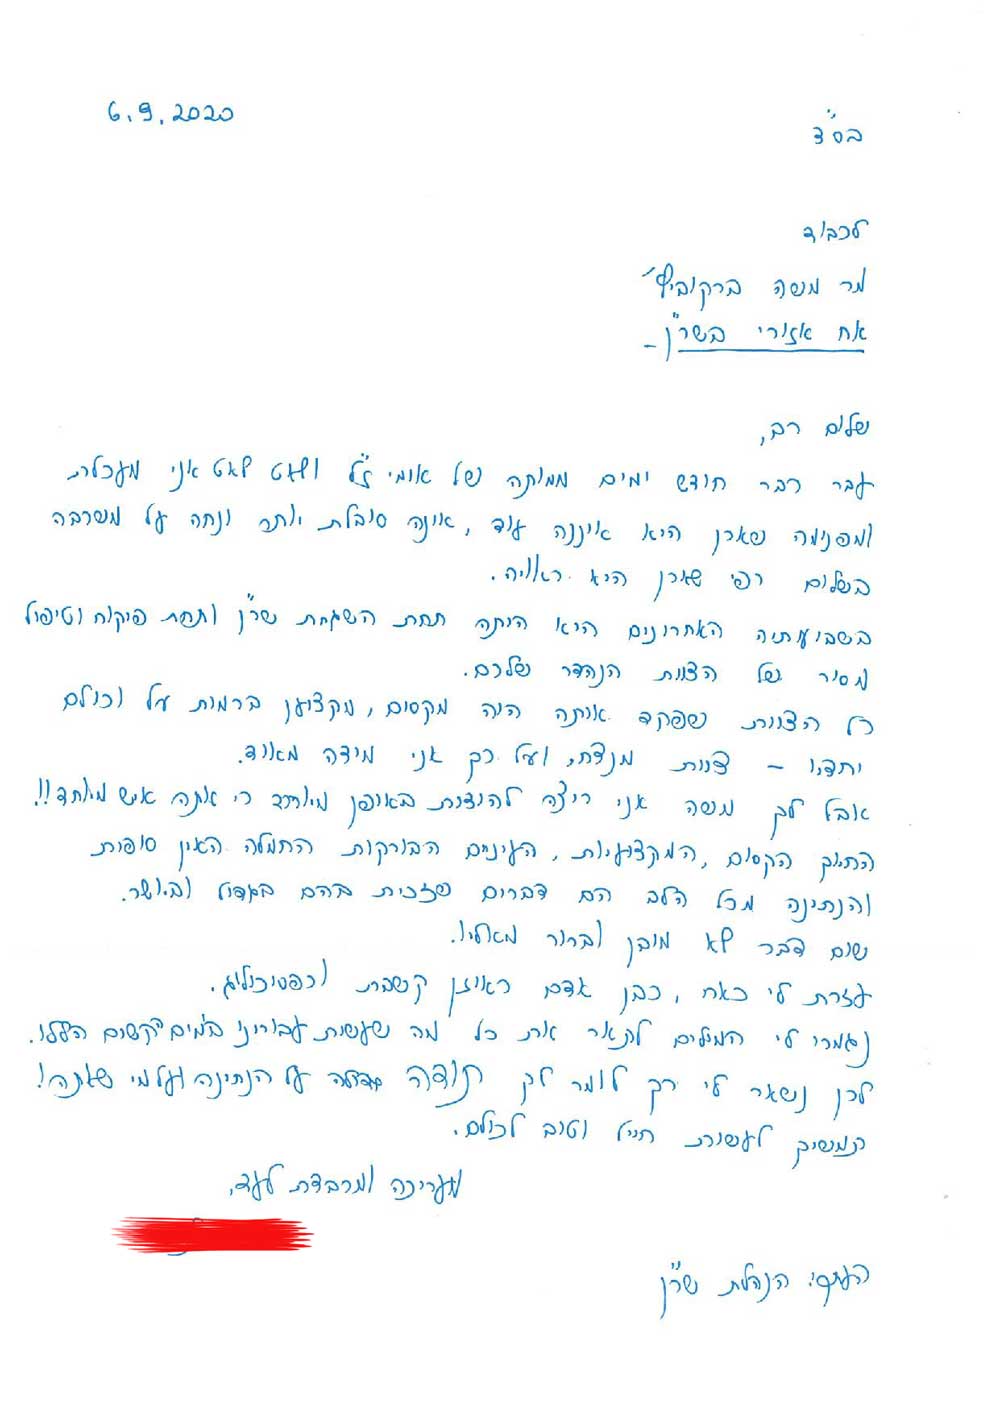 6.9.2020
בס"ד
לכבוד
מר משה ברקוביץ'
אח אזורי בשר"ן -
שלום רב,
עבר כבר חודש ימים ממותה של אומי ז"ל ולאט לאט אני מעכלת
ומפנימה שאכן היא איננה עוד, אינה סובלת יותר ונחה על משכבה
בשלום כפי שאכן היא ראויה.
בשבועותיה האחרונים היא היתה תחת השגחת שר"ן ותחת פיקוח וטיפול
מסור של הצוות הנהדר שלכם.
כל הצוות שפקד אותה היה מקסים, מקצוען ברמות על וכולם
יחדיו - צוות מנצח, ועל כך אני מודה מאוד.
אבל לך משה אני רוצה להודות באופן מיוחד כי אתה איש מיוחד!!
החיוך הקסום, המקצועיות, העיניים הבורקות החמלה האין סופית
והנתינה מכל הלב הם דברים שזכית בהם בגדול וביושר.
שום דבר לא מובן וברור מאליו.
עזרת לי כאח, כבן אדם כאוזן קשבת וכפסיכולוג.
נגמרו לי המילים לתאר את כל מה שעשית עבורינו בימים הקשים הללו.
לכן נשאר לי רק לומר לך תודה גדולה על הנתינה ועל מי שאתה!
תמשיך לעשות חייל וטוב לכולם.
מעריכה ומכבדת לעד,
העתק: הנהלת שר"ן